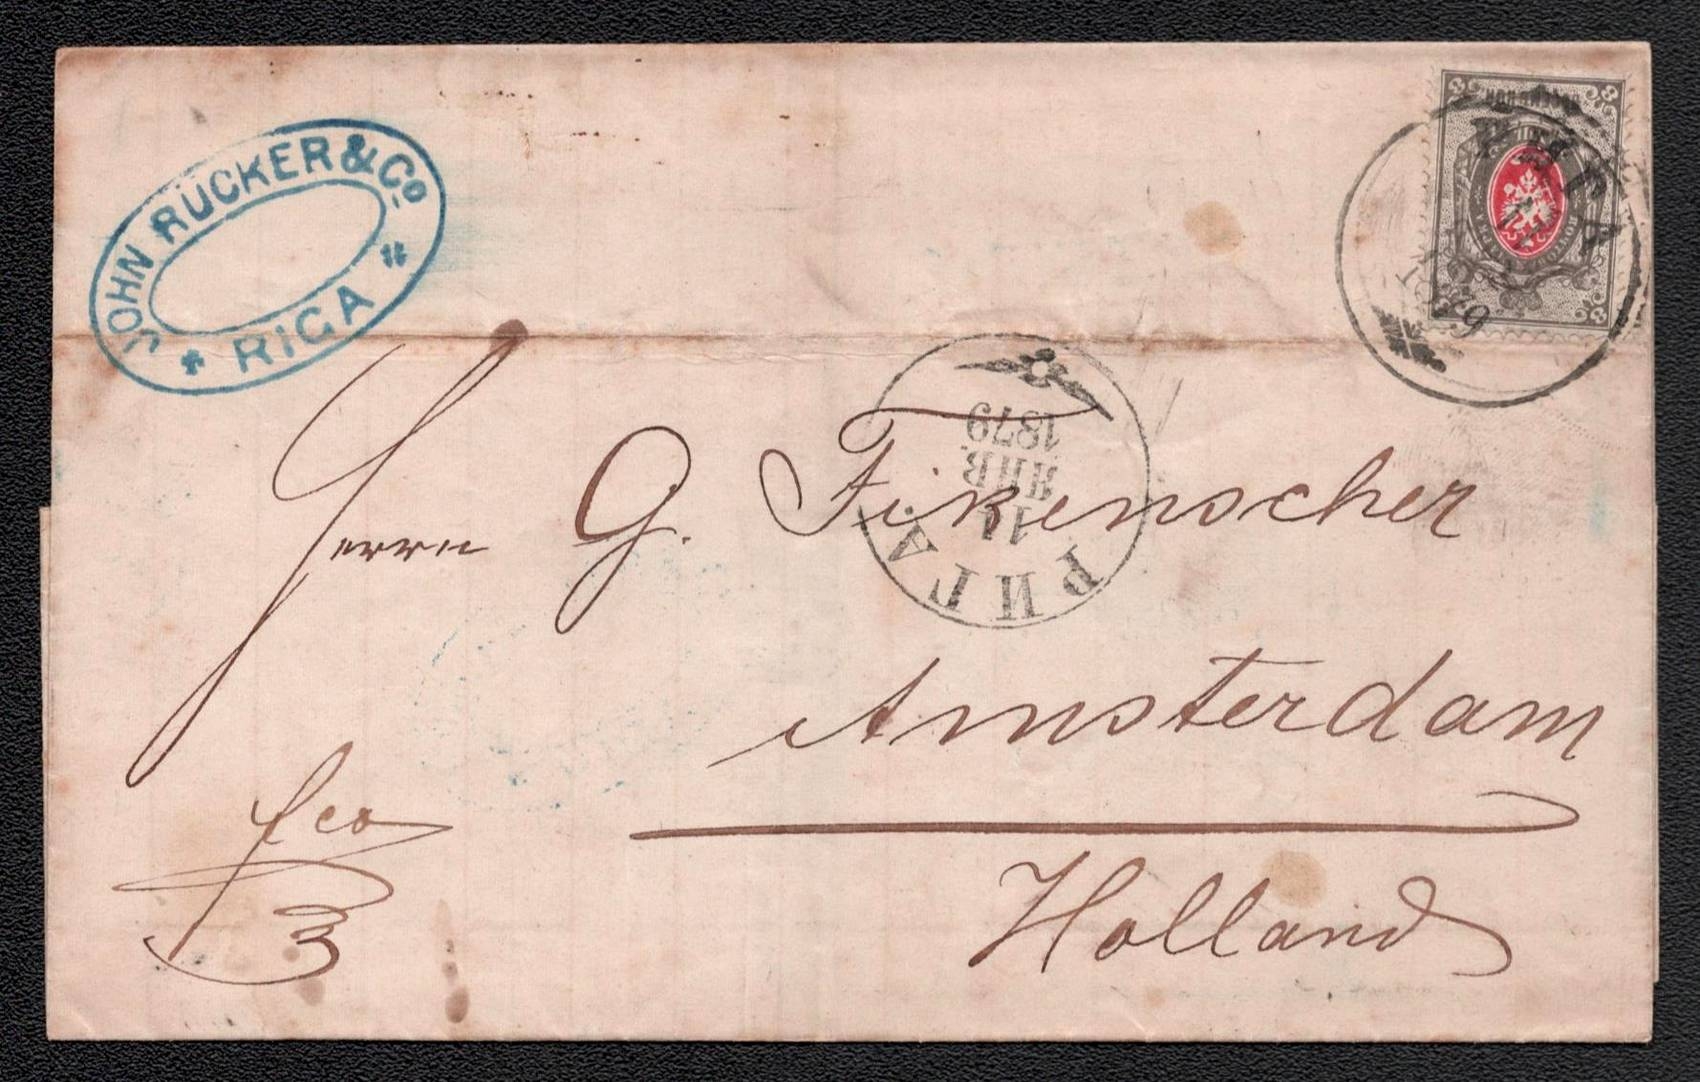 JOHN RUCKER & Co
* RIGA *
8 8
РИГА
РИГА.
11
ЯНВ.
1879
Herrn G. Fikenscher
Amsterdam
Holland
fco
3